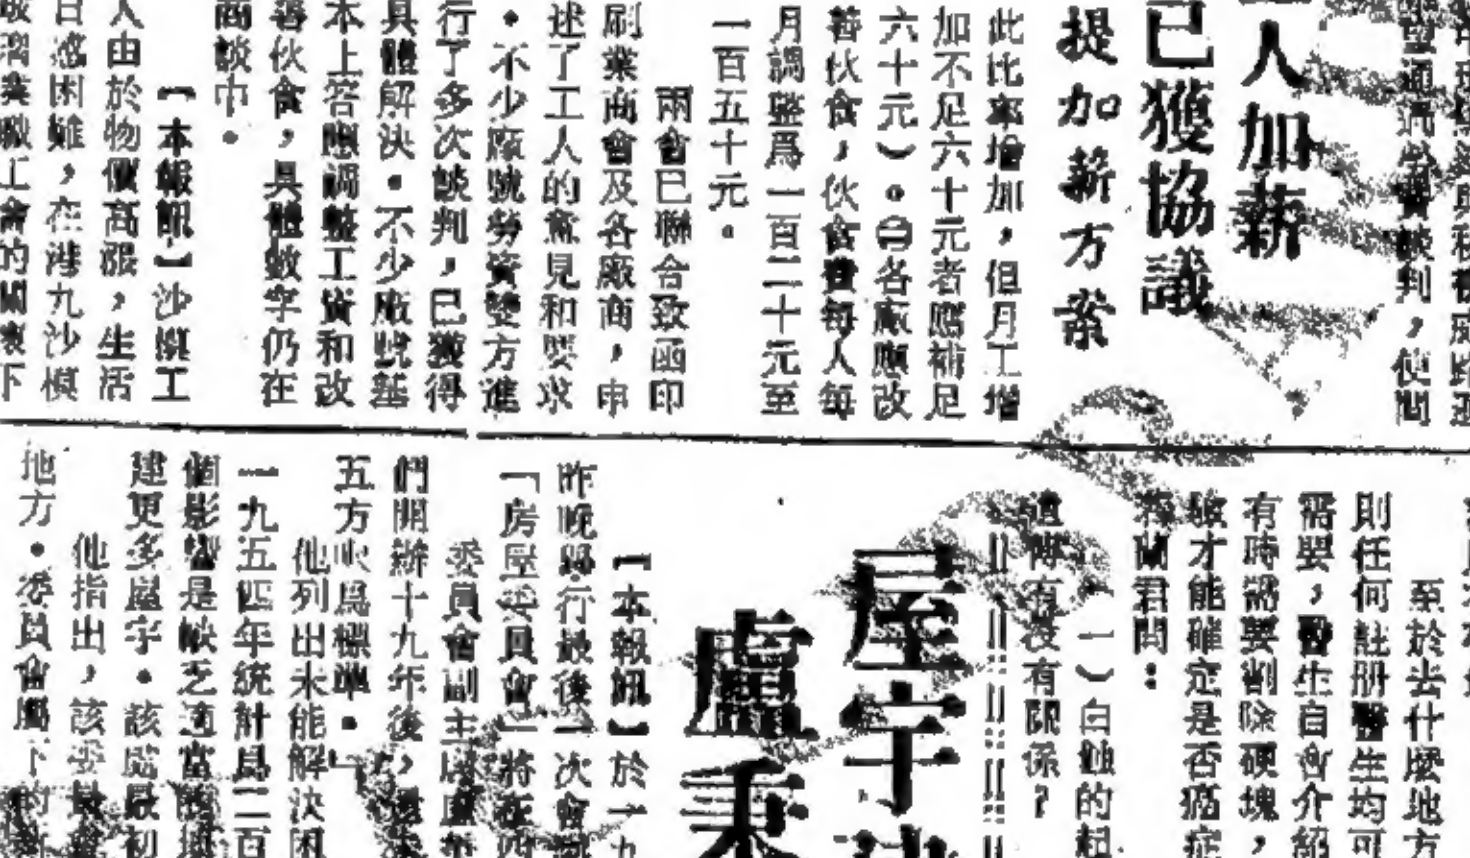 工人加薪
已獲協議
提加薪方案
此比率增加，但月工增
加不足六十元者應補足
六十元）。㊂各廠應改
善伙食，伙食費每人每
月調整爲一百二十元至
一百五十元。
兩會已聯合致函印
刷業商會及各廠商，申
述了工人的意見和要求
。不少廠號勞資雙方進
行了多次談判，已獲得
具體解決。不少廠號基
本上答應調整工資和改
善伙食，具體數字仍在
商談中。
【本報訊】沙模工
人由於物價高漲，生活
日感困難，在港九沙模
玻璃業職工會的關懷下
至於去什麼地方
則任何註册醫生均可
需要，醫生自會介紹
有時需要割除硬塊，
才能確定是否癌症
蘭君問：
（一）白蝕的起
遺傳有沒有關係？
屋宇
盧秉
【本報訊】於一九
昨晚舉行最後一次會
「房屋委員會」將在四
委員會副主席盧秉
們開辦十九年後，
五方呎爲標準。」
他列出未能解決困
一九五四年統計爲二百
個影響是缺乏適當的
建更多屋宇。該處最初
他指出，該委員會
地方。委員會屬下的